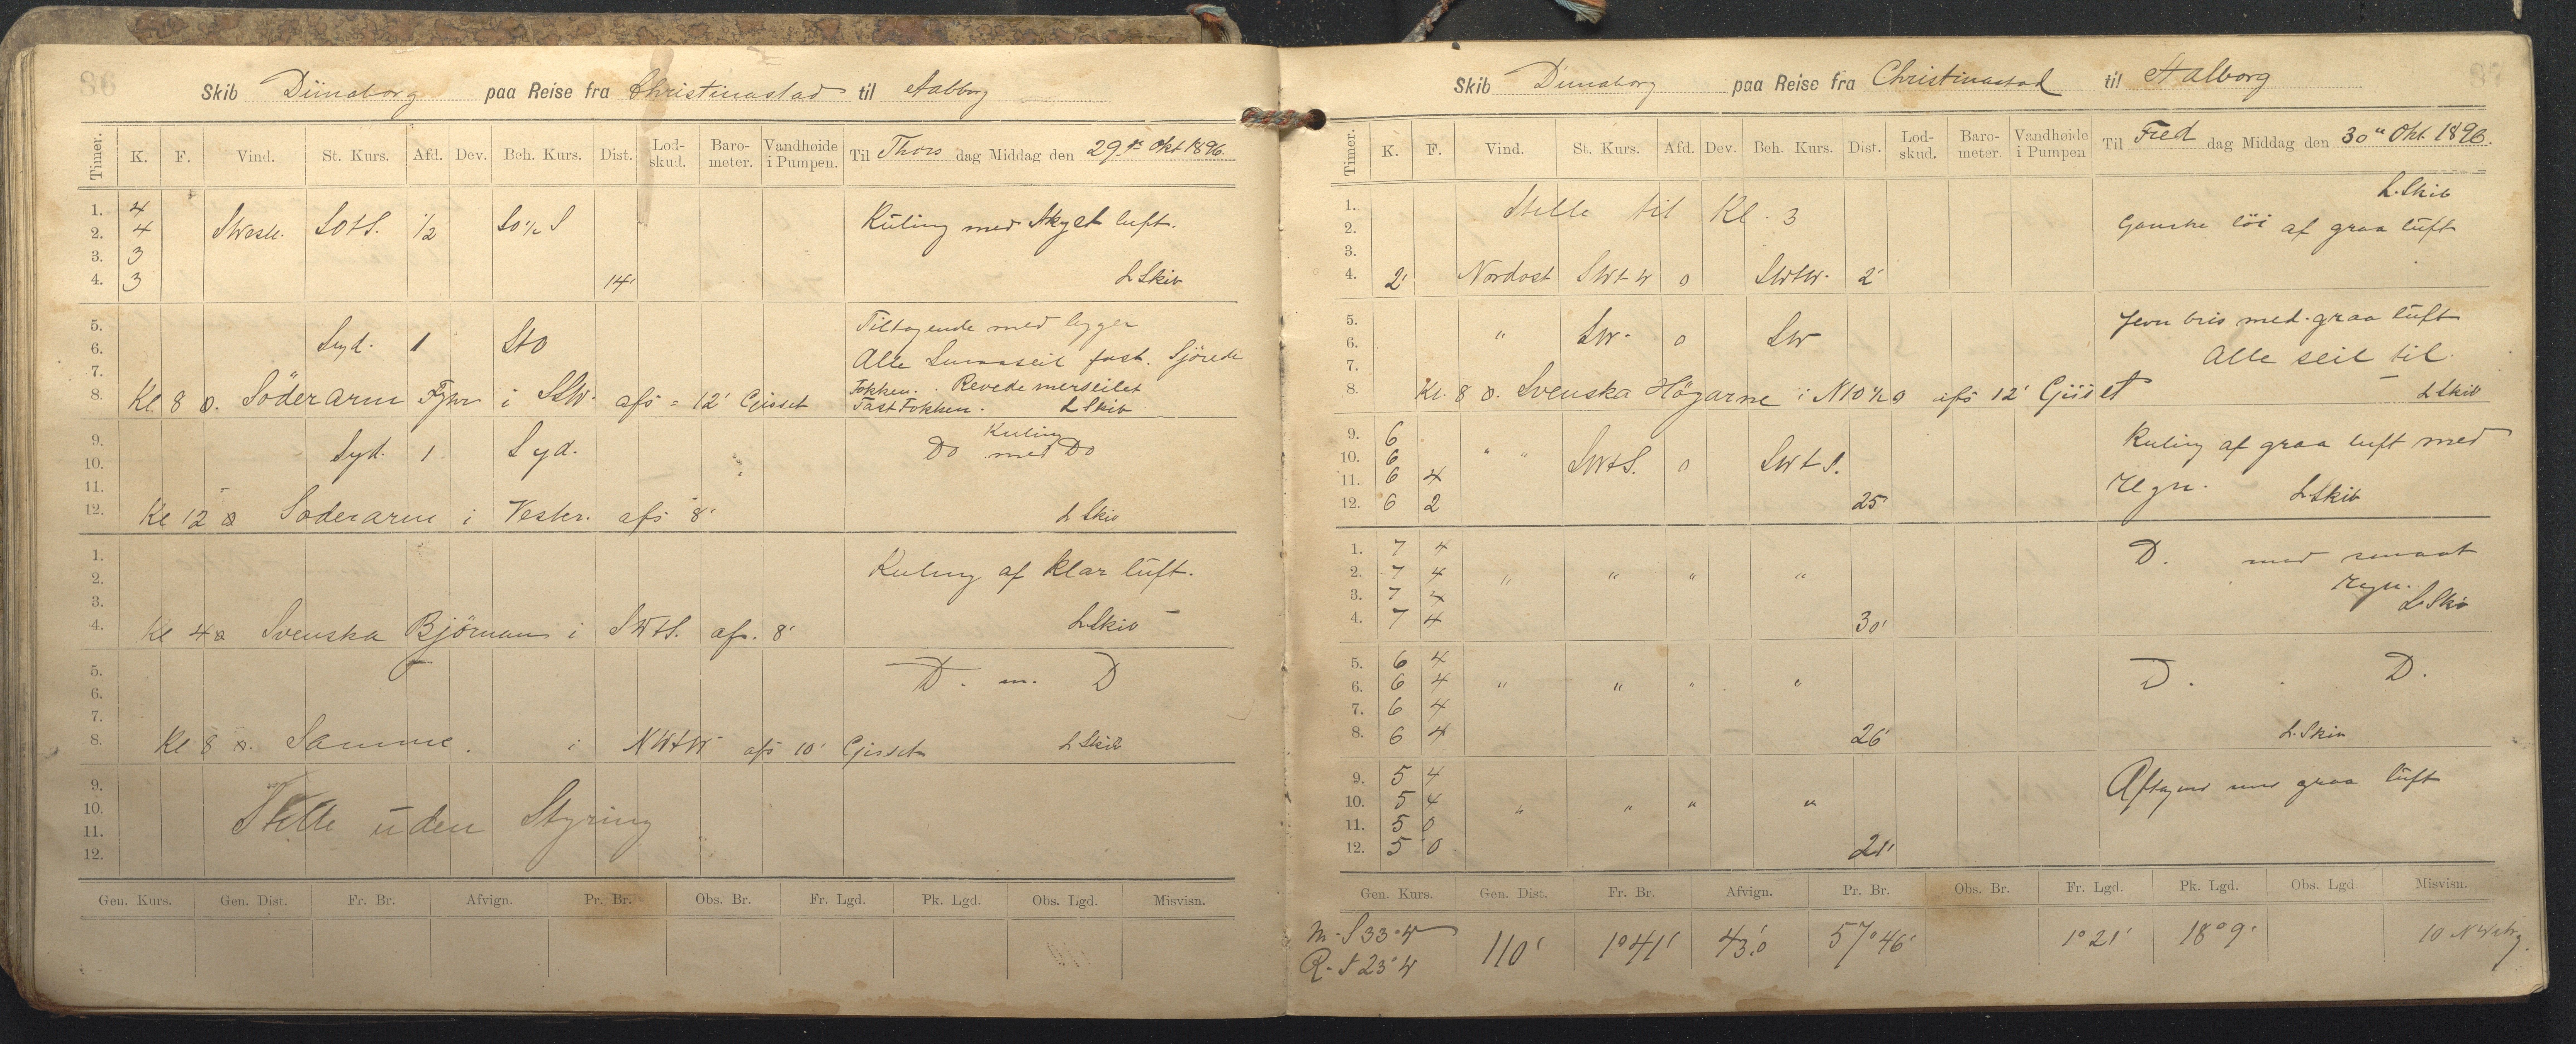 86
Skib Dünaborg paa Reise fra Christinastad til Aalborg
Timer. K. F. Vind. St. Kurs. Afd. Dev. Beh. Kurs. Dist. Lod-skud. Baro-meter. Vandhøide i Pumpen. Til Thors dag Middag den 29. Okt 1896.
1. 4
2. 4 SWestl. SOtS. 1/2 SO 1/2 S Kuling med Skyet luft.
3. 3
4. 3 14' L Skib
5. Tiltagende med bygger
6. Syd. 1 StO Alle Smaaseil fast. Sjörede
7. Fokken. Revede merseilet
8. Kl. 8 O. Söderarm Fyhr i SSW. afs = 12' Gisset Fast Fokken. L Skib
9. Syd. 1 Syd. Do Kuling med Do
10.
11.
12. Kl 12 Söderarm i Vester. afs 8' L Skib
1. Kuling af klar luft.
2.
3.
4. Kl 4 Svenska Björnan i SWtS. afs. 8' L Skib
5. D. m. D
6.
7.
8. Kl 8 Samme. i NWtW afs 10' Gisset L Skib
9.
10. Stille uden Styring
11.
12.
Gen. Kurs. Gen. Dist. Fr. Br. Afvign. Pr. Br. Obs. Br. Fr. Lgd. Pk. Lgd. Obs. Lgd. Misvisn.
87
Skib Dunaborg paa Reise fra Christinastad til Aalborg
Timer. K. F. Vind. St. Kurs. Afd. Dev. Beh. Kurs. Dist. Lod-skud. Baro-meter. Vandhøide i Pumpen Til Fred dag Middag den 30 Okt. 1896.
1. Stille til Kl. 3 L. Skib
2. Ganske löi af graa luft
3.
4. 2' Nordost SWtW 0 SWtW. 2'
5. Jevn bris med graa luft
6. " SW. 0 SW Alle seil til.
7.
8. Kl. 8 O. Svenska Högarne i NtO 1/2 O afs 12' Gisset L Skib
9. 6 Kuling af graa luft med
10. 6 " " SWtS. 0 SWtS.
11. 6 4 Regn.
12. 6 2 25 L. Skib
1. 7 4 D. med smaat
2. 7 4 " " " " Regn.
3. 7 4 L Skib
4. 7 4 30'
5. 6 4 D. D.
6. 6 4 " " " "
7. 6 4
8. 6 4 26' L. Skib
9. 5 4 Aftagend med graa luft
10. 5 4 " " " "
11. 5 0
12. 5 0 21'
Gen. Kurs. Gen. Dist. Fr. Br. Afvign. Pr. Br. Obs. Br. Fr. Lgd. Pk. Lgd. Obs. Lgd. Misvisn.
m. S 33° W 110' 1° 41' 43.'0 57° 46' 1° 21' 18° 9' 10 NWstg.
R. S 23° W